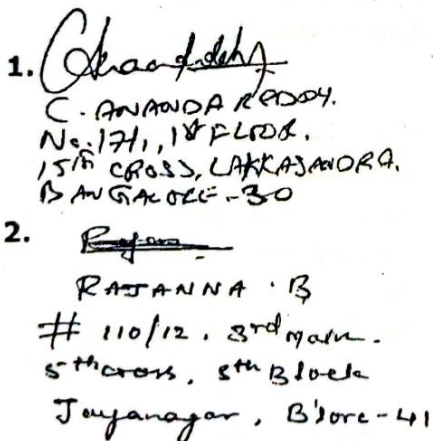 1.
C. ANANDA REDDY.
No. 171, 1st FLOOR.
15th CROSS, LAKKASANDRA.
BANGALORE-30
2.
RAJANNA . B
# 110/12. 3rd main.
5th cross, 8th Block
Jayanagar, B'lore-41